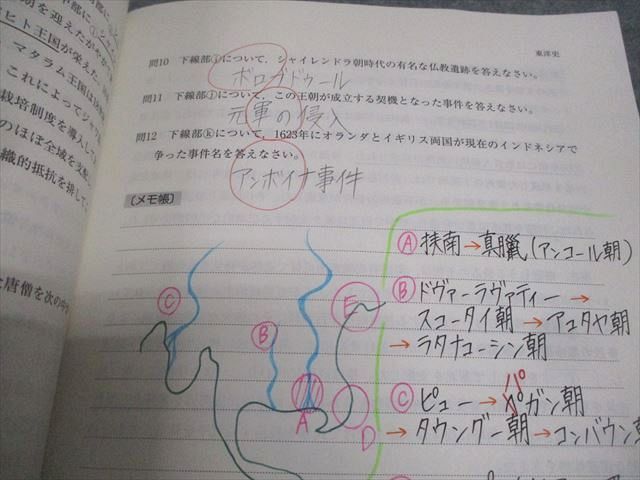 東洋史
問10 下線部ⓘについて，シャイレンドラ朝時代の有名な仏教遺跡を答えなさい。
ボロブドゥール
問11 下線部ⓙについて，この王朝が成立する契機となった事件を答えなさい。
元軍の侵入
問12 下線部ⓚについて，1623年にオランダとイギリス両国が現在のインドネシアで
争った事件名を答えなさい。
アンボイナ事件
〔メモ帳〕
Ⓐ 扶南→真臘(アンコール朝)
Ⓑ ドヴァーラヴァティー→
スコータイ朝→アユタヤ朝
→ラタナコーシン朝
Ⓒ ピュー→パガン朝
→タウングー朝→コンバウン朝
C
B
E
A
D
朝を迎えたがやが
ヒト王国が栄えた。
マタラム王国は
これによってジャ
栽培制度を導入して
のほぼ全域を支配
織的抵抗を排して
な唐僧を次の中